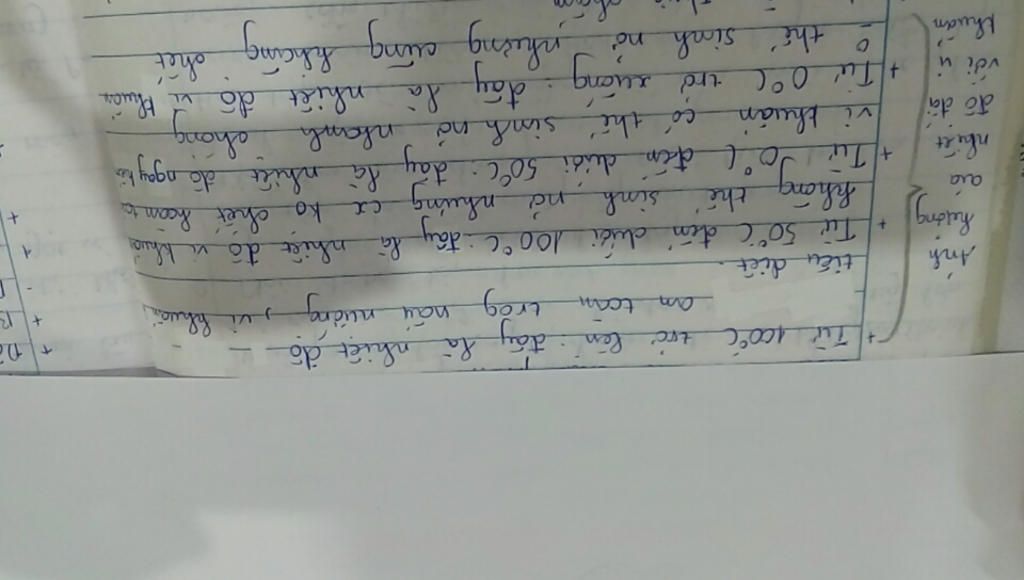 Ảnh
hưởng
của
nhiệt
độ đối
với vi
khuẩn
+ Từ 100°C trở lên: đây là nhiệt độ
an toàn trog nấu nướng, vi khuẩn
tiêu diệt.
+ Từ 50°C đến dưới 100°C: đây là nhiệt độ vi khuẩn
không thể sinh nở nhưng cx ko chết hoàn to
+ Từ 0°C đến dưới 50°C: đây là nhiệt độ nguy hi
vi khuẩn có thể sinh nở nhanh chóng
+ Từ 0°C trở xuống: đây là nhiệt độ vi khuẩn
o thể sinh nở nhưng cũng không chết